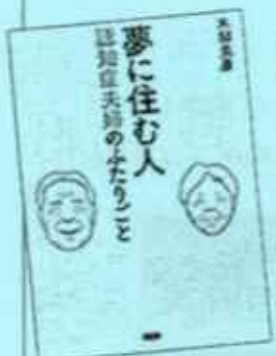 夢に住む人
認知症夫婦のふたりごと